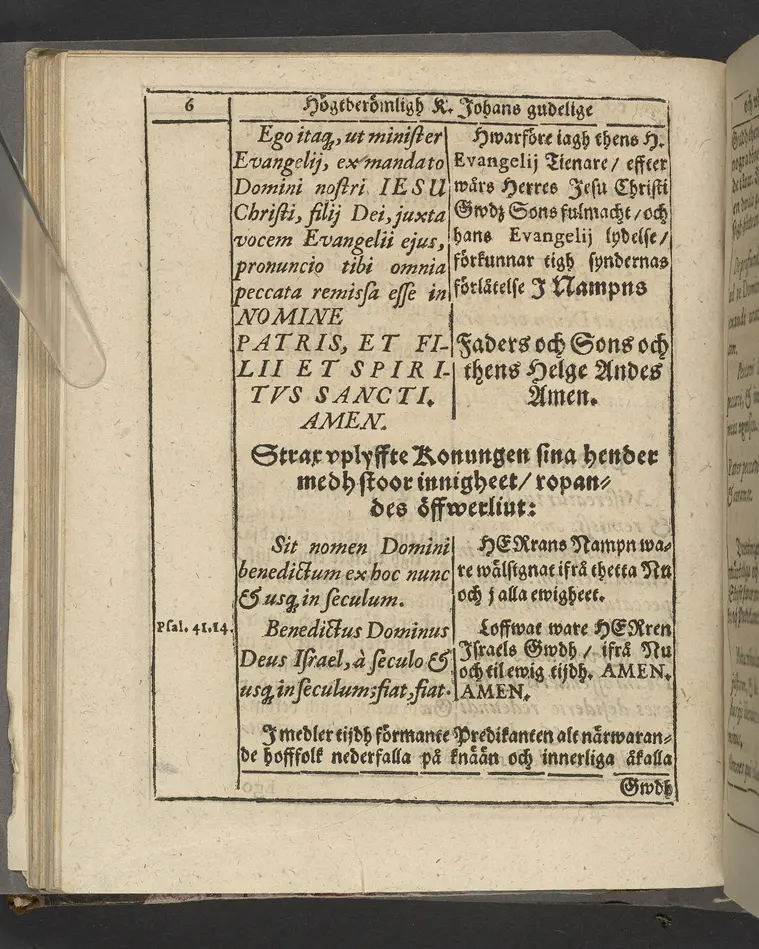 6
Högtberömligh K. Johans gudelige
Ego itaq́;, ut minister
Evangelij, ex mandato
Domini nostri IESU
Christi, filij Dei, juxta
vocem Evangelii ejus,
pronuncio tibi omnia
peccata remissa esse in
NOMINE
PATRIS, ET FI-
LII ET SPIRI-
TVS SANCTI.
AMEN.
Hwarföre iagh thens H.
Evangelij Tienare / effter
wårs Herres Jesu Christi
Gwdz Sons fulmacht / och
hans Evangelij lydelse /
förkunnar tigh syndernas
förlåtelse J Nampns
Faders och Sons och
thens Helge Andes
Amen.
Strax vplyffte Konungen sina hender
medh stoor innigheet / ropan-
des öffwerliut:
Sit nomen Domini
benedictum ex hoc nunc
& usq; in seculum.
HERrans Nampn wa-
re wälsignat ifrå thetta Nu
och j alla ewigheet.
Psal. 41.14.
Benedictus Dominus
Deus Israel, à seculo &
usq; in seculum; fiat, fiat.
Loffwat ware HERren
Israels Gwdh / ifrå Nu
och til ewig tijdh. AMEN.
AMEN.
J medler tijdh förmante Predikanten alt närwaran-
de hofffolk nederfalla på knään och innerliga åkalla
Gwdh